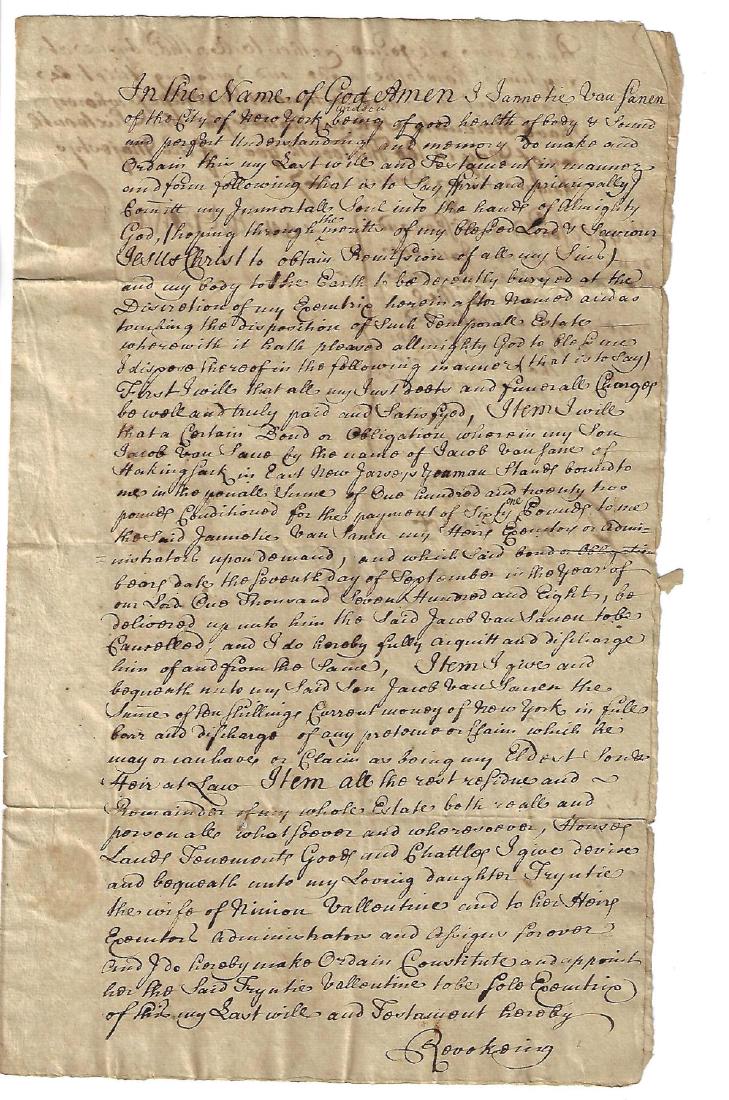 In the Name of God Amen I Jannetie Van Sanen
of the City of New York widdow being of good health of body & Sound
and perfect Understanding and memory do make and
Ordain this my Last will and Testament in manner
and form following that is to Say first and principally I
Comitt my Immortall Soul into the hands of Almighty
God, (hoping through the meritts of my blessed Lord & Saviour
Jesus Christ to obtain Remission of all my Sins)
and my body to the Earth to be decently buryed at the
Discretion of my Exeutrix herein after Named and as
touching the disposition of Such Temporall Estate
wherewith it hath pleased allmighty God to bless me
I dispose thereof in the following manner (that is to Say)
First I will that all my Just debts and funerall Charges
be well and truly paid and Satisfyed, Item I will
that a Certain Bond or Obligation wherein my Son
Jacob Van Sane by the name of Jacob Van Sane of
Hackingsack in East New Jarsey Yeoman Stands bound to
me in the penall Sume of One hundred and twenty two
pounds Conditioned for the payment of Sixty one Pounds to me
the Said Jannetie Van Sanen my Heirs Executors or Admi-
-nistrators upon demand, and which Said bond or obligation
bears date the Seventh day of September in the Year of
our Lord One Thousand Seven Hundred and Eight, be
delivered up unto him the Said Jacob Van Sanen to be
Cancelled, and I do hereby fully acquitt and discharge
him of and from the Same, Item I give and
bequeath unto my Said Son Jacob Van Sanen the
Sume of ten Shillings Current money of New York in full
barr and discharge of any pretence or Claim which he
may or can have or Claim as being my Eldest Son &
Heir at Law Item all the rest residue and
Remainder of my whole Estate both reall and
personall whatsoever and wheresoever, Houses
Lands Tenements Goods and Chattles I give devise
and bequeath unto my Loving daughter Tryntie
the wife of Ninion Vallentine and to her Heirs
Executors Administrators and Assigns forever
And I do hereby make Ordain Constitute and appoint
her the Said Tryntie Vallentine to be Sole Exeutrix
of this my Last will and Testament hereby
Revokeing